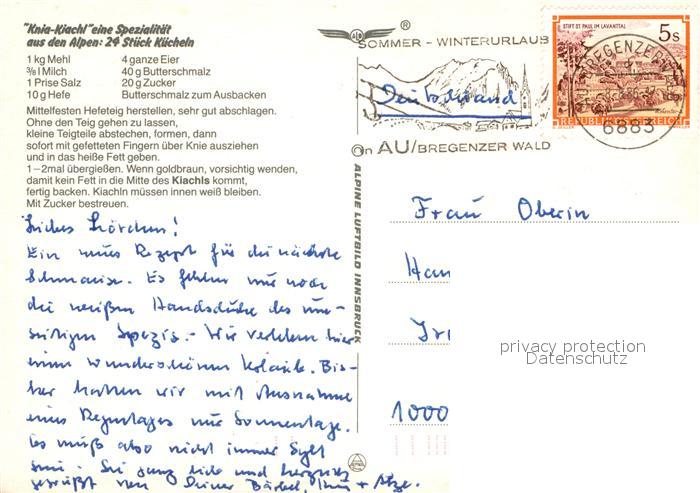 "Knia-Kiachl" eine Spezialität
aus den Alpen: 24 Stück Kücheln
1 kg Mehl 4 ganze Eier
3/8 l Milch 40 g Butterschmalz
1 Prise Salz 20 g Zucker
10 g Hefe Butterschmalz zum Ausbacken
Mittelfesten Hefeteig herstellen, sehr gut abschlagen.
Ohne den Teig gehen zu lassen,
kleine Teigteile abstechen, formen, dann
sofort mit gefetteten Fingern über Knie ausziehen
und in das heiße Fett geben.
1–2mal übergießen. Wenn goldbraun, vorsichtig wenden,
damit kein Fett in die Mitte des Kiachls kommt,
fertig backen. Kiachln müssen innen weiß bleiben.
Mit Zucker bestreuen.
Liebes Lörchen!
Ein neues Rezept für die nächste
Schmauserei. Es fehlen nur noch
die weißen Handschuhe des
Spezis. - Wir verleben hier
einen wunderschönen Urlaub. Bis-
her hatten wir mit Ausnahme
eines Regentages nur Sonnentage.
Es muß also nicht immer Sylt
sein. Sei ganz lieb und herzlichst
gegrüßt von Deiner Bärbel,
ALPINE LUFTBILD INNSBRUCK
ALB ®
SOMMER - WINTERURLAUB
Deutschland
in AU/BREGENZER WALD
STIFT ST. PAUL IM LAVANTTAL
5s
REPUBLIK ÖSTERREICH
AU, BREGENZERWALD
6883
Frau Oberin
Han
Ir
1000
privacy protection
Datenschutz